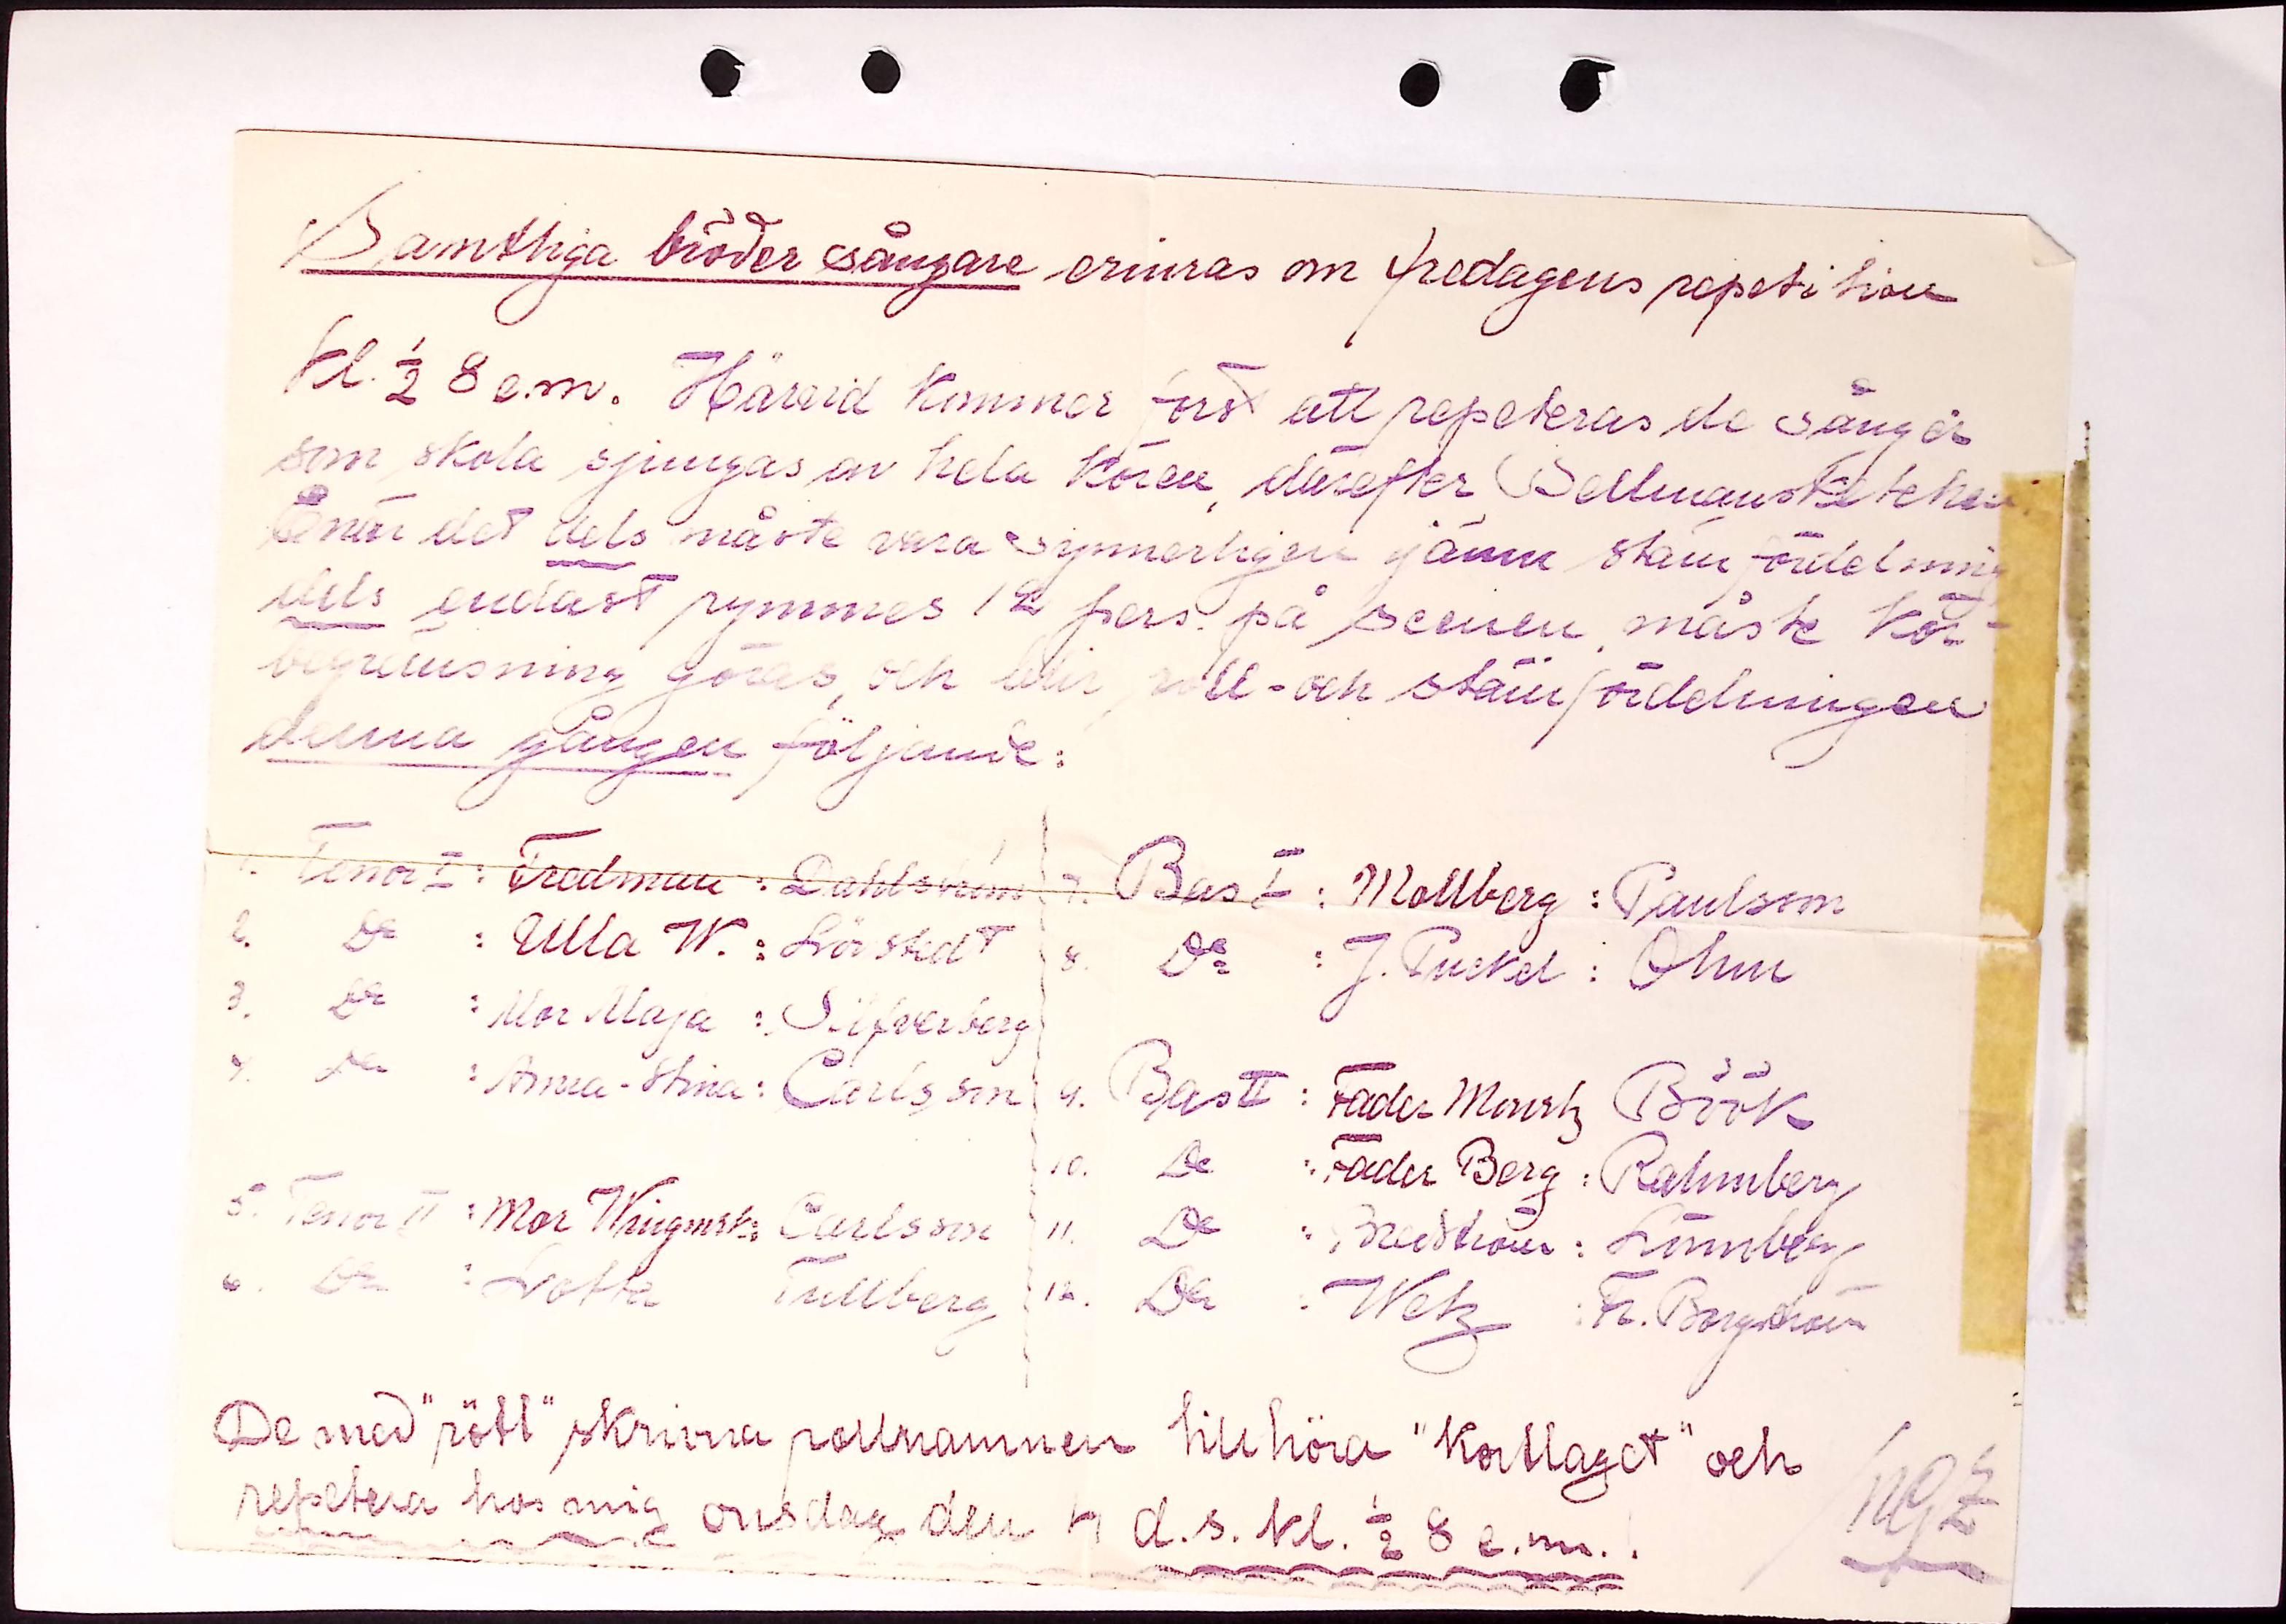 Samtliga bröder sångare erinras om fredagens repetition
kl. ½ 8 e.m. Härvid kommer först att repeteras de sånger
som skola sjungas av hela kören, därefter Bellmanssketchen.
Enär det dels måste vara synnerligen jämn stämfördelning
dels endast rymmes 12 pers. på scenen, måste kör-
begränsning göras, och blir roll- och stämfördelningen
denna gången följande:
1. Tenor I : Fredman : Dahlström
2. Do : Ulla W. : Lövstedt
3. Do : Mor Maja : Silfverberg
4. Do : Anna-Stina : Carlsson
5. Tenor II : Mor Wingmark : Carlsson
6. Do : Lotta Tullberg
7. Bas I : Mollberg : Paulsson
8. Do : J. Puckel : Ohm
9. Bas II : Fader Movitz Böök
10. Do : Fader Berg : Rahmberg
11. Do : Bredström : Lönnberg
12. Do : Wetz : Fr. Borgström
De med "rött" skrivna rollnamnen tillhöra "kortlaget" och
repetera hos mig onsdag den 4 d.s. kl. ½ 8 e.m.!